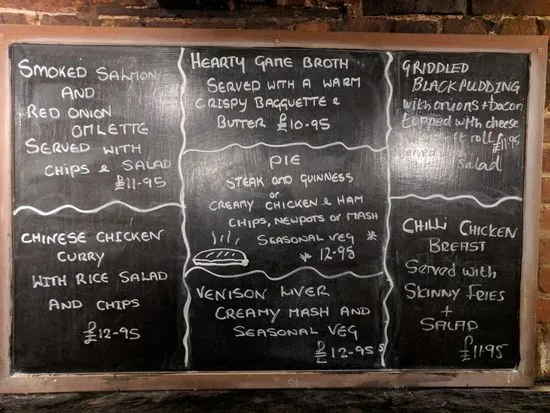 SMOKED SALMON
AND
RED ONION
OMLETTE
SERVED WITH
CHIPS & SALAD
£11-95
HEARTY GAME BROTH
SERVED WITH A WARM
CRISPY BAGGUETTE &
BUTTER £10-95
GRIDDLED
BLACK PUDDING
with onions + bacon
topped with cheese
soft roll £11.95
Served with salad
PIE
STEAK AND GUINNESS
or
CREAMY CHICKEN & HAM
CHIPS, NEWPOTS OR MASH
SEASONAL VEG *
* 12-95
CHINESE CHICKEN
CURRY
WITH RICE SALAD
AND CHIPS
£12-95
VENISON LIVER
CREAMY MASH AND
SEASONAL VEG
£12-95
CHILLI CHICKEN
BREAST
Served with
SKINNY FRIES
+
SALAD
£11.95